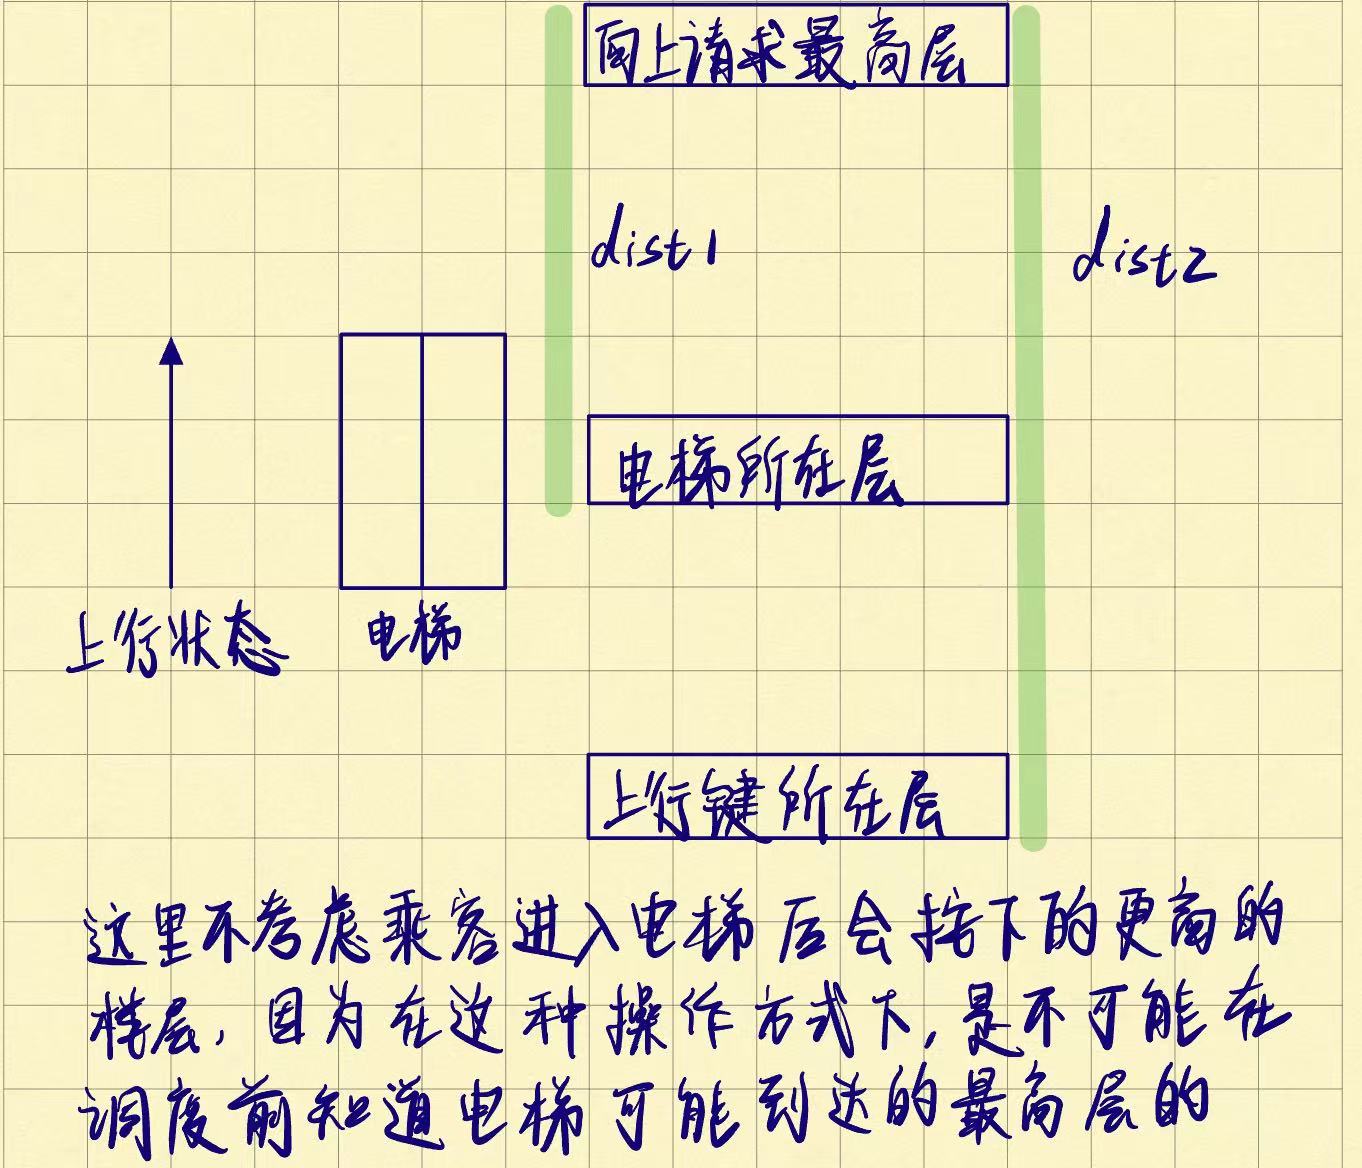 向上请求最高层
dist1
dist2
电梯所在层
上行状态
电梯
上行键所在层
这里不考虑乘客进入电梯后会按下的更高的
楼层，因为在这种操作方式下，是不可能在
调度前知道电梯可能到达的最高层的